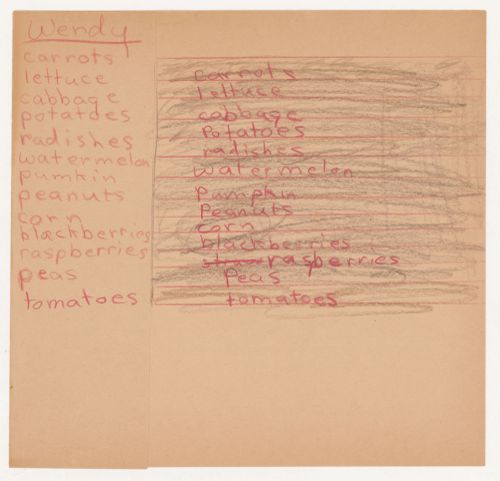 Wendy
carrots
lettuce
cabbage
potatoes
radishes
watermelon
pumkin
peanuts
corn
blackberries
raspberries
peas
tomatoes
carrots
lettuce
cabbage
Potatoes
radishes
watermelon
Pumpkin
Peanuts
corn
blackberries
raspberries
Peas
tomatoes